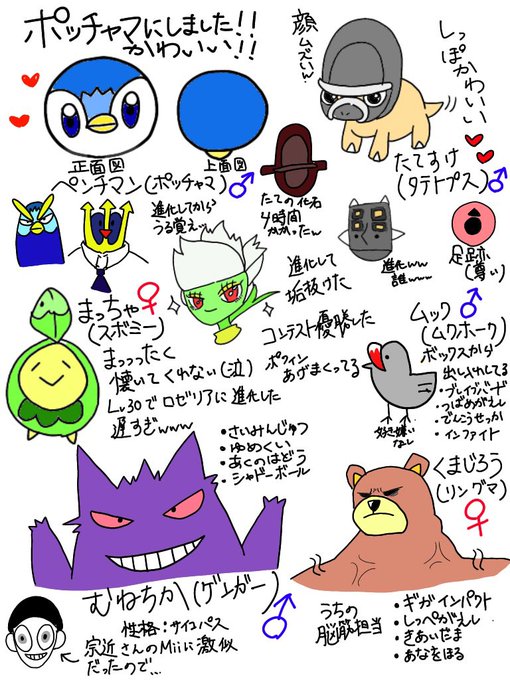 ポッチャマにしました!!
かわいい!!
正面図
上面図
ペンチマン(ポッチャマ)♂
進化してから
うる覚えッ
顔
ムズいん
しっぽかわいい
たてすけ
(タテトプス)♂
たての作画
4時間
かかったん
進化ww
誰www
足跡
(尊い)
まっちゃ♀
(スボミー)
まっったく
懐いてくれない(泣)
Lv.30でロゼリアに進化した
遅すぎwww
進化して
垢抜けた
コンテスト優勝した
ポフィン
あげまくってる
ムック♂
(ムクホーク)
ボックスから
出し入れしてる
・ブレイブバード
・つばめがえし
・でんこうせっか
・インファイト
好き嫌い
なし
・さいみんじゅつ
・ゆめくい
・あくのはどう
・シャドーボール
むねちか(ゲンガー)♂
性格:サイコパス
宗近さんのMiiに激似
だったので…
くまじろう
(リングマ)
♀
うちの
脳筋担当
・ギガインパクト
・しっぺがえし
・きあいだま
・あなをほる